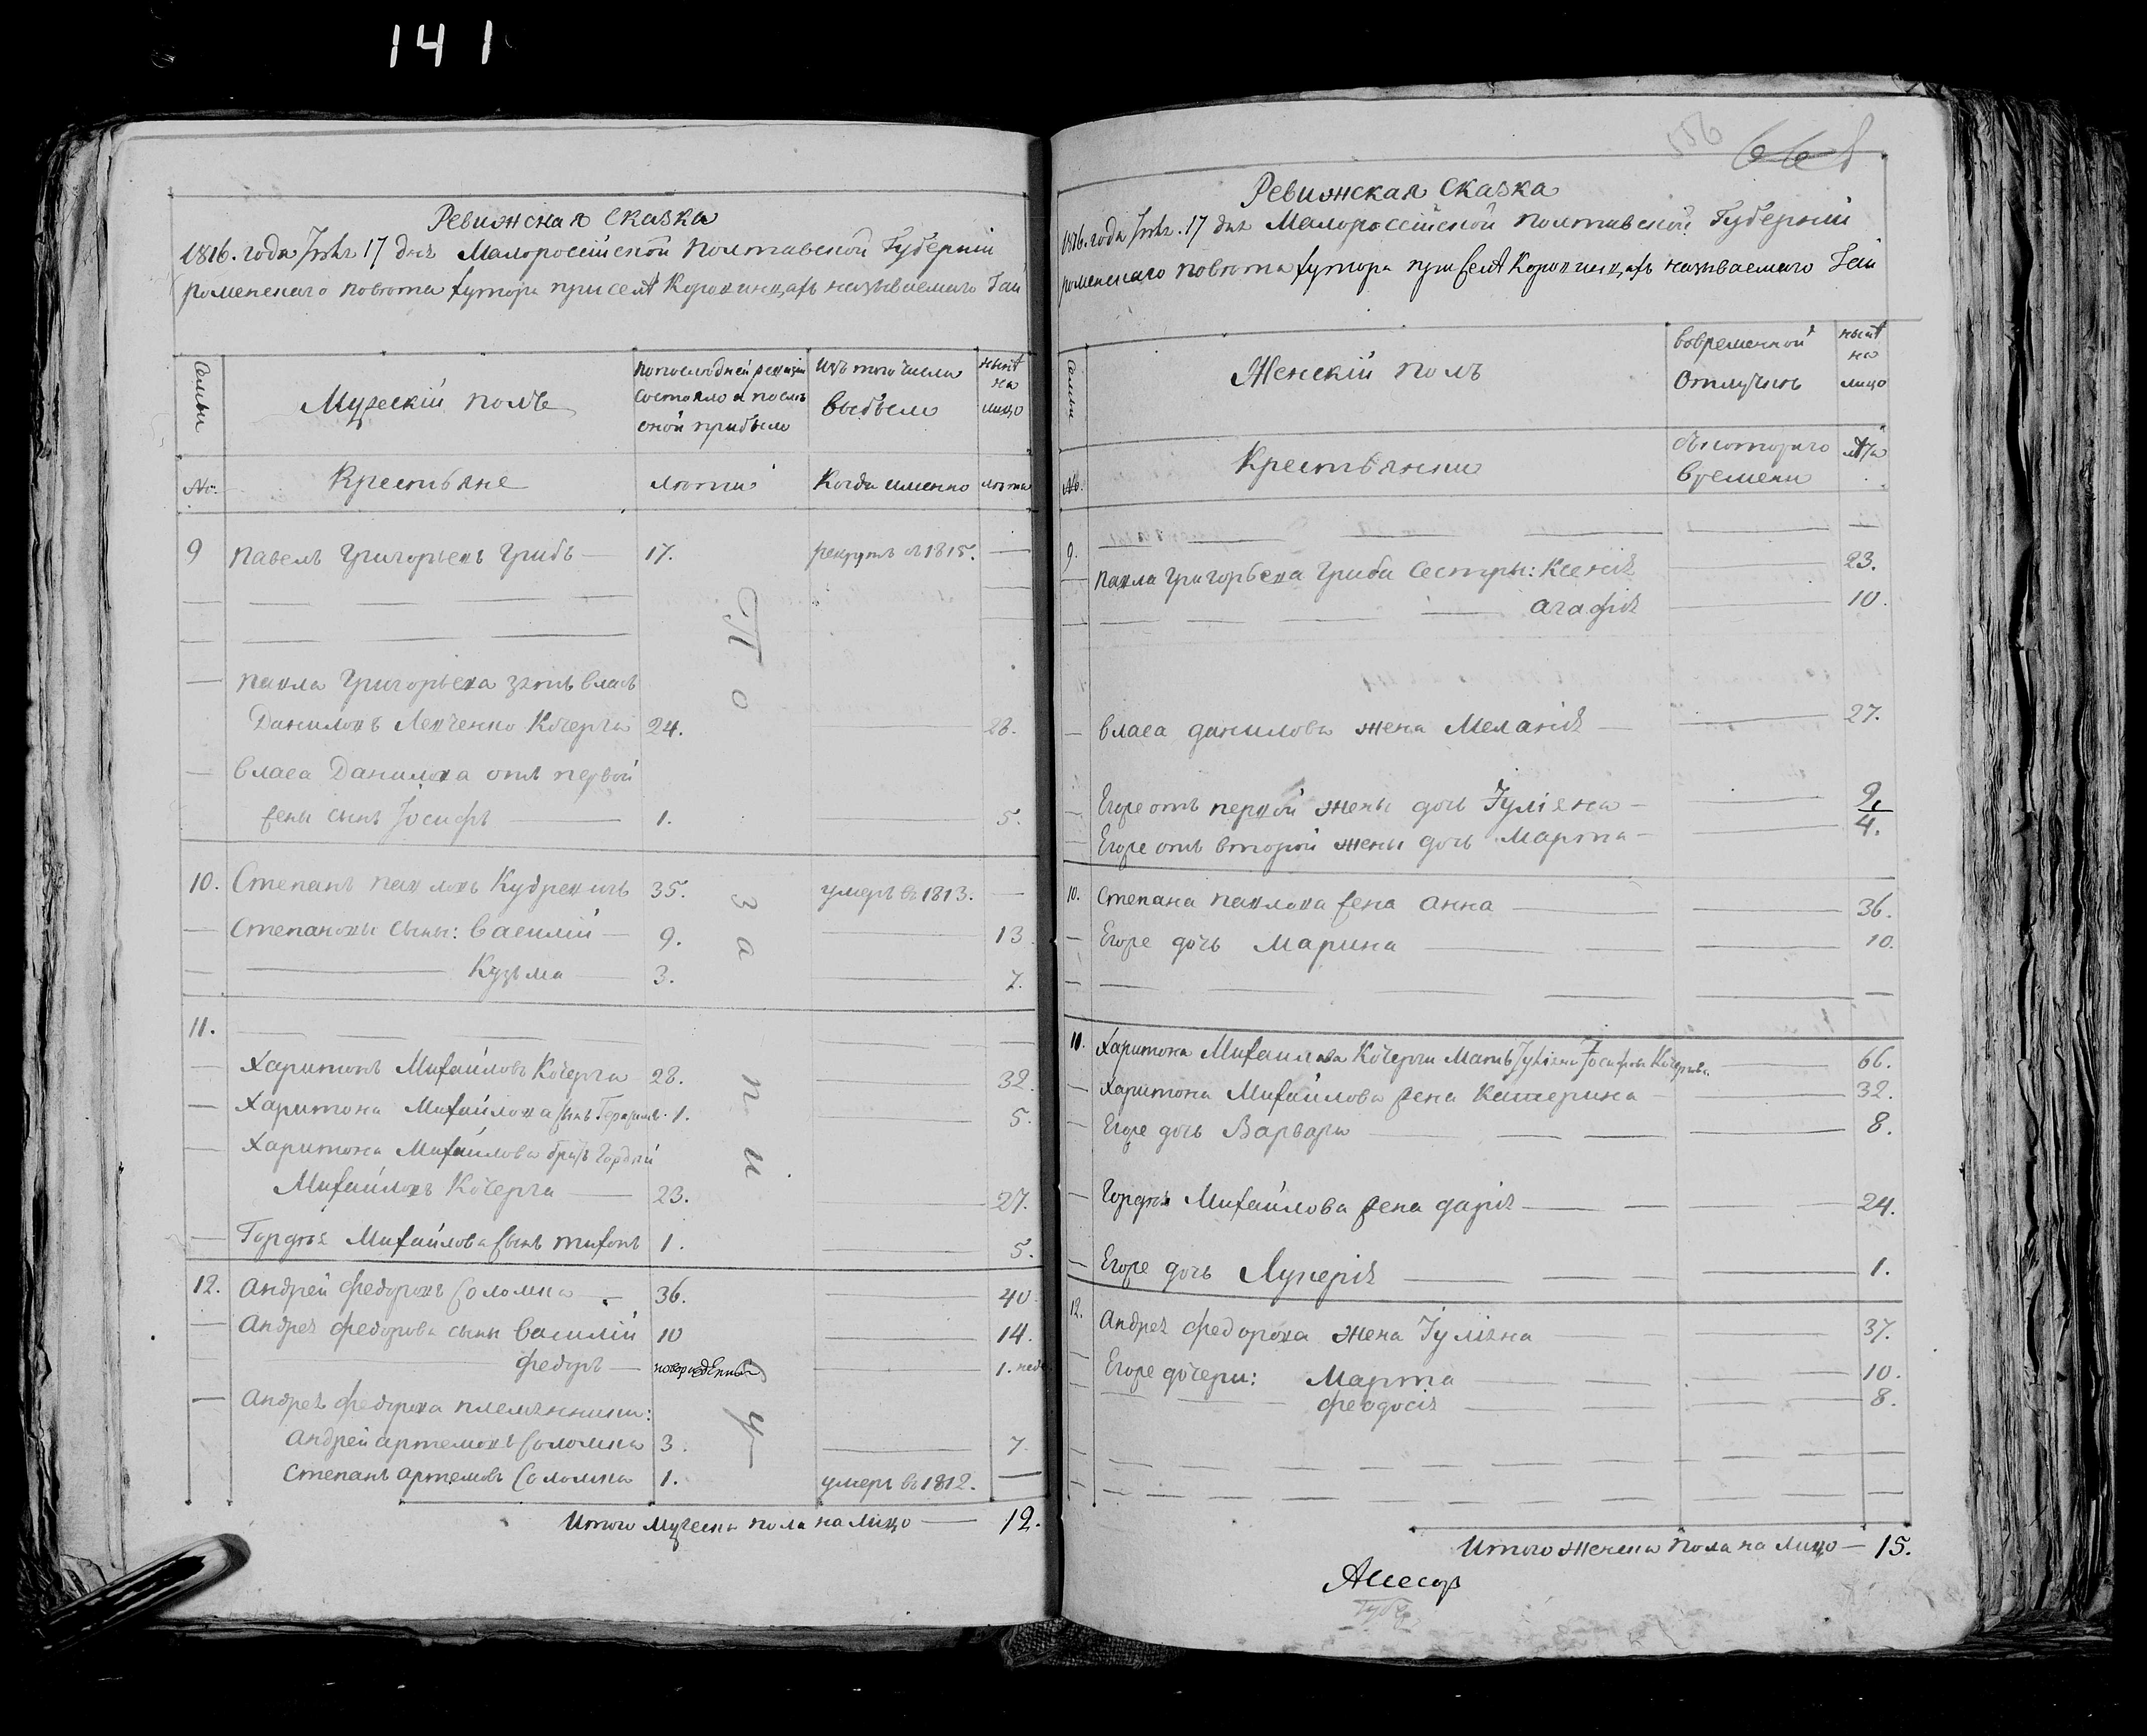 141
Ревижская сказка
1816. года Іюля 17 дня Малороссійской Полтавской Губерніи
роменского повѣта хутора при селѣ Коровинцахъ называемаго Гай
Семьи
Мужескій полъ
По последней ревизіи состояло и послѣ оной прибыло
Изъ того числа выбыло
нынѣ на лицо
№.
Крестьяне
лѣта
Когда именно
лѣта
9 Павелъ Григорьевъ Грибъ 17. рекрутъ въ 1815.
Павла Григорьева зять власъ
Даниловъ Левченко Кочерга 24. 28.
власа Данилова отъ первой
жены сынъ Іосифъ 1. 5.
10. Степанъ павловъ 35. умеръ въ 1813.
Степановы сыны: василій 9. 13
Кузьма 3. 7.
11.
Харитонъ Михайловъ Кочерга 28. 32.
Харитона Михайлова сынъ Герасимъ 1. 5.
Харитона Михайлова братъ Гордѣй
Михайловъ Кочерга 23. 27.
Гордѣя Михайлова сынъ тихонъ 1. 5.
12. Андрей федоровъ Соломка 36. 40
Андрея федорова сыны василій 10 14.
федоръ новорожденный 1. неде
Андрея федорова племянники:
Андрей артемовъ Соломка 3. 7
Степанъ артемовъ Соломка 1. умеръ въ 1812.
Итого мужеска пола на лицо 12.
По запи
556
661
Ревижская сказка
1816. года Іюля 17 дня Малороссійской Полтавской Губерніи
роменского повѣта хутора при селѣ Коровинцахъ называемаго Гай
Семьи
Женскій полъ
вовременной отлучкѣ
нынѣ на лицо
№.
Крестьянки
съкотораго времени
лѣта
9.
павла Григорьева Гриба сестры: Ксенія 23.
агафія 10.
власа данилова жена Меланія 27.
Егоже отъ первой жены дочь Іуліяна 9.
Егоже отъ второй жены дочь Марта 4.
10. Степана павлова жена анна 36.
Егоже дочь Марина 10.
11. Харитона Михайлова Кочерги Мать Іуліяна Іосифова Кочергова 66.
Харитона Михайлова жена Катерина 32.
Егоже дочь Варвара 8.
Гордѣя Михайлова жена дарія 24.
Егоже дочь Лукерія 1.
12. Андрея федорова жена Іуліяна 37.
Егоже дочери: Марта 10.
феодосія 8.
Итого женска пола на лицо 15.